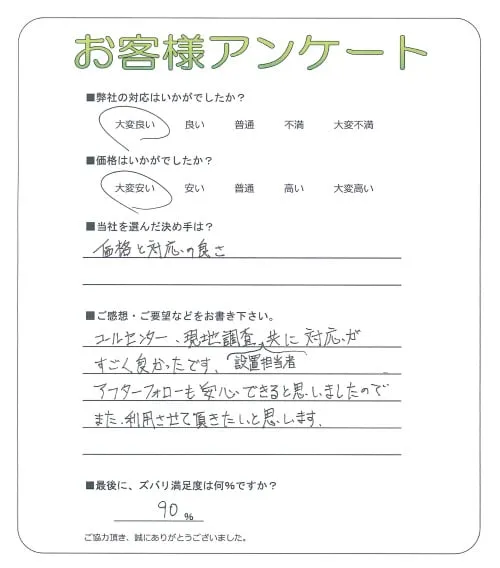 お客様アンケート
■弊社の対応はいかがでしたか？
大変良い 良い 普通 不満 大変不満
■価格はいかがでしたか？
大変安い 安い 普通 高い 大変高い
■当社を選んだ決め手は？
価格と対応の良さ
■ご感想・ご要望などをお書き下さい。
コールセンター、現地調査、共に対応が
設置担当者
すごく良かったです。
アフターフォローも安心できると思いましたので
また、利用させて頂きたいと思います。
■最後に、ズバリ満足度は何%ですか？
90 %
ご協力頂き、誠にありがとうございました。